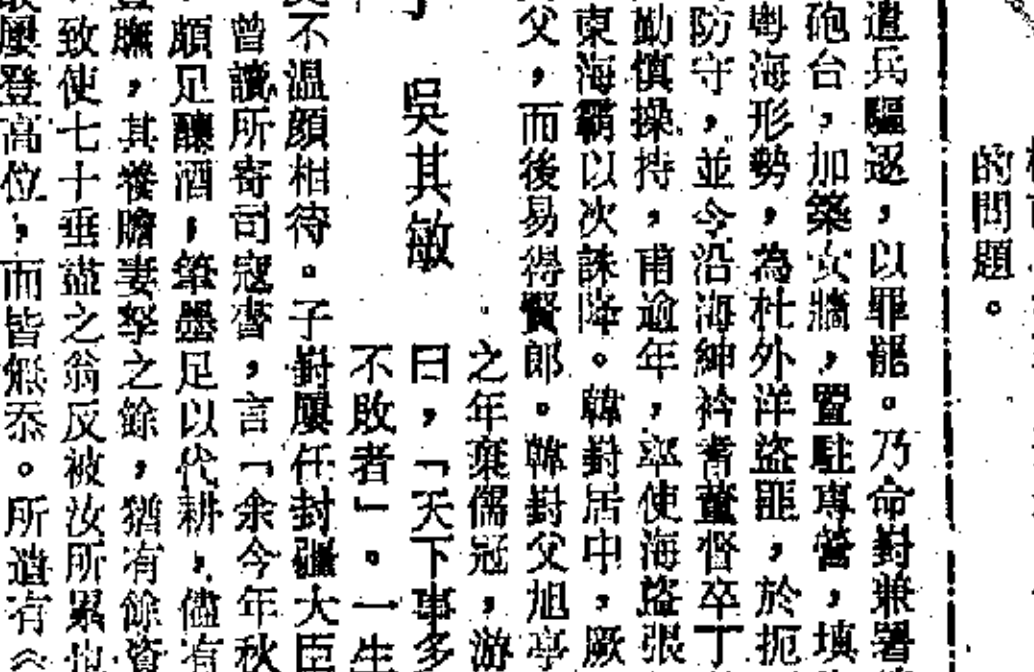 的問題。
遣兵驅逐,以罪罷。乃命對兼署
砲台,加築女牆,置駐專營,填
粵海形勢,為杜外洋盜匪,於扼
防守,並令沿海紳衿耆董督卒丁
勤慎操持,甫逾年,率使海盜張
東海霸以次誅降。韓崶居中,厥
父,而後易得賢郎。韓崶父旭亭
之年棄儒冠,游
曰,「天下事多
不敗者」。一生
吳其敏
不溫顏相待。子崶屢任封疆大臣
曾讀所寄司寇書,言「余今年秋
頗足釀酒,筆墨足以代耕,儘有
,其養贍妻孥之餘,猶有餘資
致使七十垂盡之翁反被汝所累也
屢登高位,而皆無忝。所遺有《